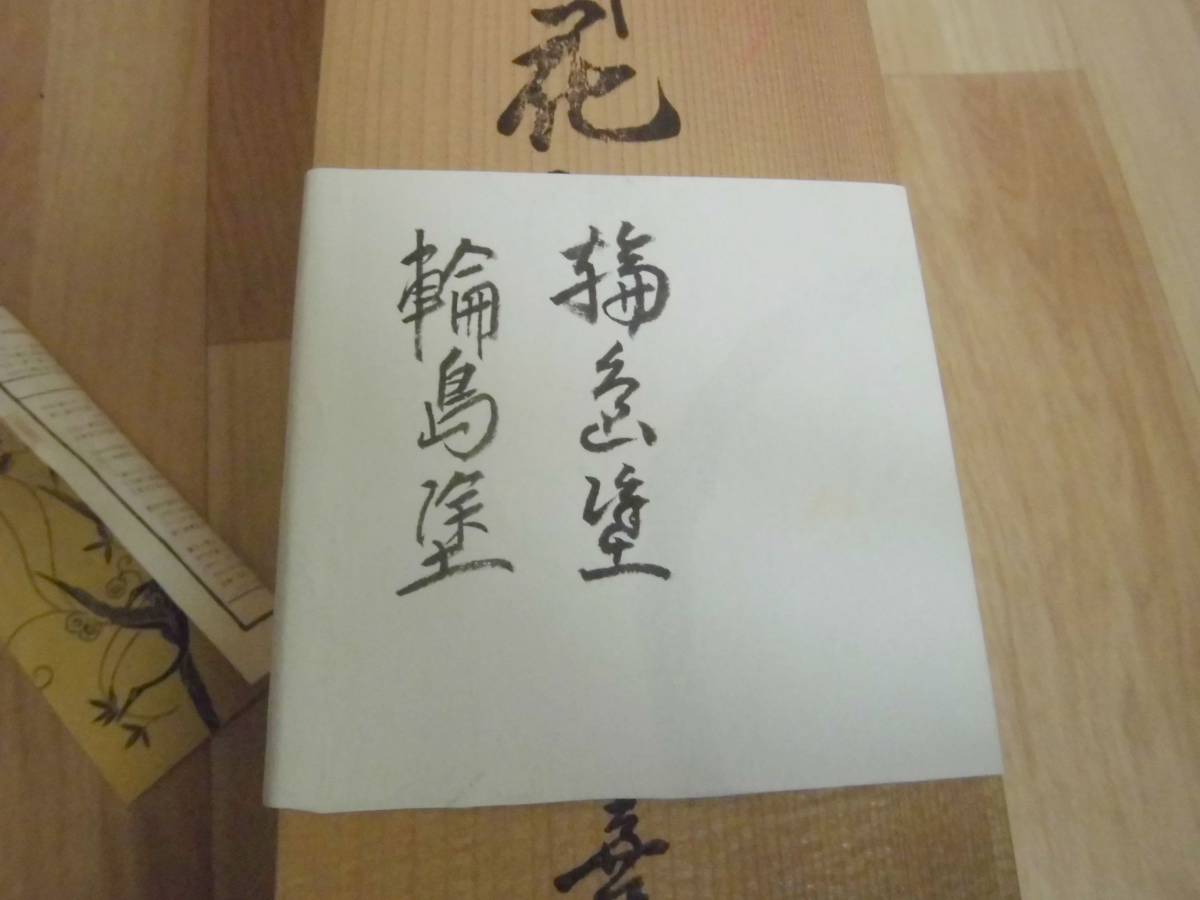 花
輪島塗
輪島塗